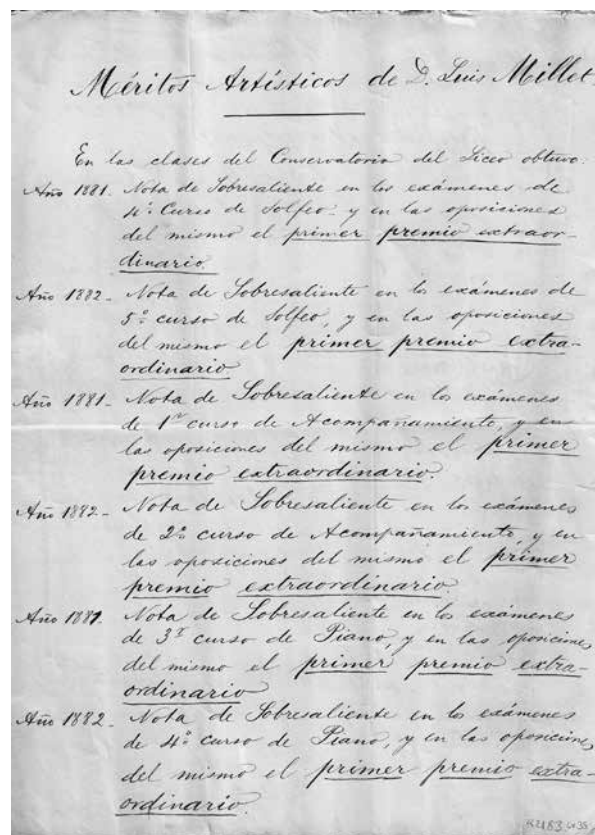 Méritos Artísticos de D. Luis Millet.
En las clases del Conservatorio del Liceo obtuvo:
Año 1881. Nota de Sobresaliente en los exámenes de
4º Curso de Solfeo: y en las oposiciones
del mismo el primer premio extraor-
dinario.
Año 1882_ Nota de Sobresaliente en ls exámenes de
5º curso de Solfeo, y en las oposiciones
del mismo el primer premio extra-
ordinario
Año 1881_ Nota de Sobresaliente en los exámenes
de 1er curso de Acompañamiento, y en
las oposiciones del mismo el primer
premio extraordinario.
Año 1882_ Nota de Sobresaliente en los exámenes
de 2º curso de Acompañamiento, y en
las oposiciones del mismo el primer
premio extraordinario.
Año 1881. Nota de Sobresaliente en los exámenes
de 3r curso de Piano, y en las oposiciones
del mismo el primer premio extra-
ordinario
Año 1882_ Nota de Sobresaliente en ls exámenes
de 4º curso de Piano, y en las oposiciones
del mismo el primer premio extra-
ordinario.